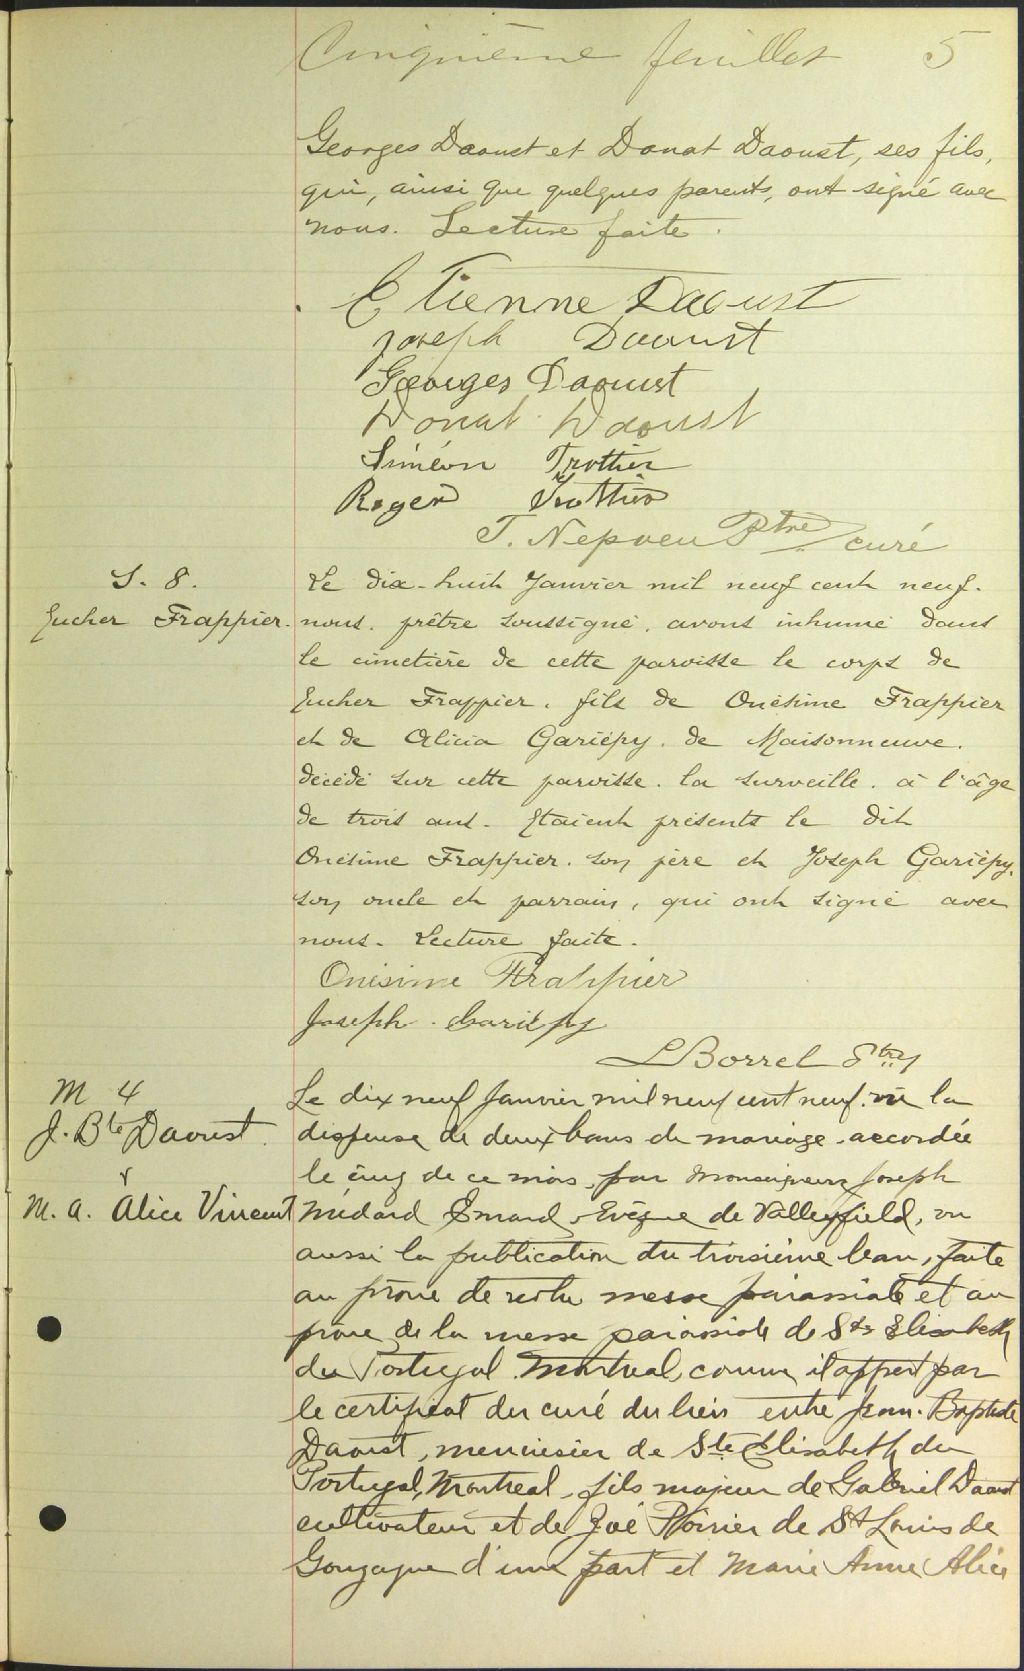 Cinquième feuillet 5
Georges Daoust et Donat Daoust, ses fils,
qui, ainsi que quelques parents, ont signé avec
nous. Lecture faite.
Etienne Daoust
Joseph Daoust
Georges Daoust
Donat Daoust
Siméon Trottier
Roger Trottier
T. Nepveu Ptre curé
S. 8.
Eucher Frappier.
Le dix-huit Janvier mil neuf cent neuf.
nous. prêtre soussigné. avons inhumé dans
le cimetière de cette paroisse le corps de
Eucher Frappier. fils de Onésime Frappier
et de Alicia Gariépy. de Maisonneuve.
décédé sur cette paroisse. la surveille. à l'âge
de trois ans. Etaient présents le dit
Onésime Frappier. son père et Joseph Gariépy.
son oncle et parrain, qui ont signé avec
nous. Lecture faite.
Onésime Frappier
Joseph Gariépy
L Borrel Ptre
M 4
J. Bte Daoust
&
M. A. Alice Vincent
Le dix neuf Janvier mil neuf cent neuf. vu la
dispense de deux bans de mariage accordée
le cinq de ce mois, par Monseigneur Joseph
Médard Emard, Evêque de Valleyfield, vu
aussi la publication du troisième ban, faite
au prône de notre messe paroissiale et au
prône de la messe paroissiale de Ste Elisabeth
du Portugal Montreal, comme il appert par
le certificat du curé du lieu entre Jean-Baptiste
Daoust, menuisier de Ste Elisabeth du
Portugal, Montreal, fils majeur de Gabriel Daoust
cultivateur et de Zoé Poirier de St Louis de
Gonzague d'une part et Marie Anne Alice